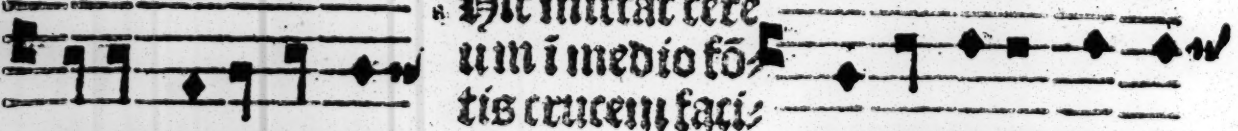 Hic mittat cere
um ī medio fō-
tis crucem faci-